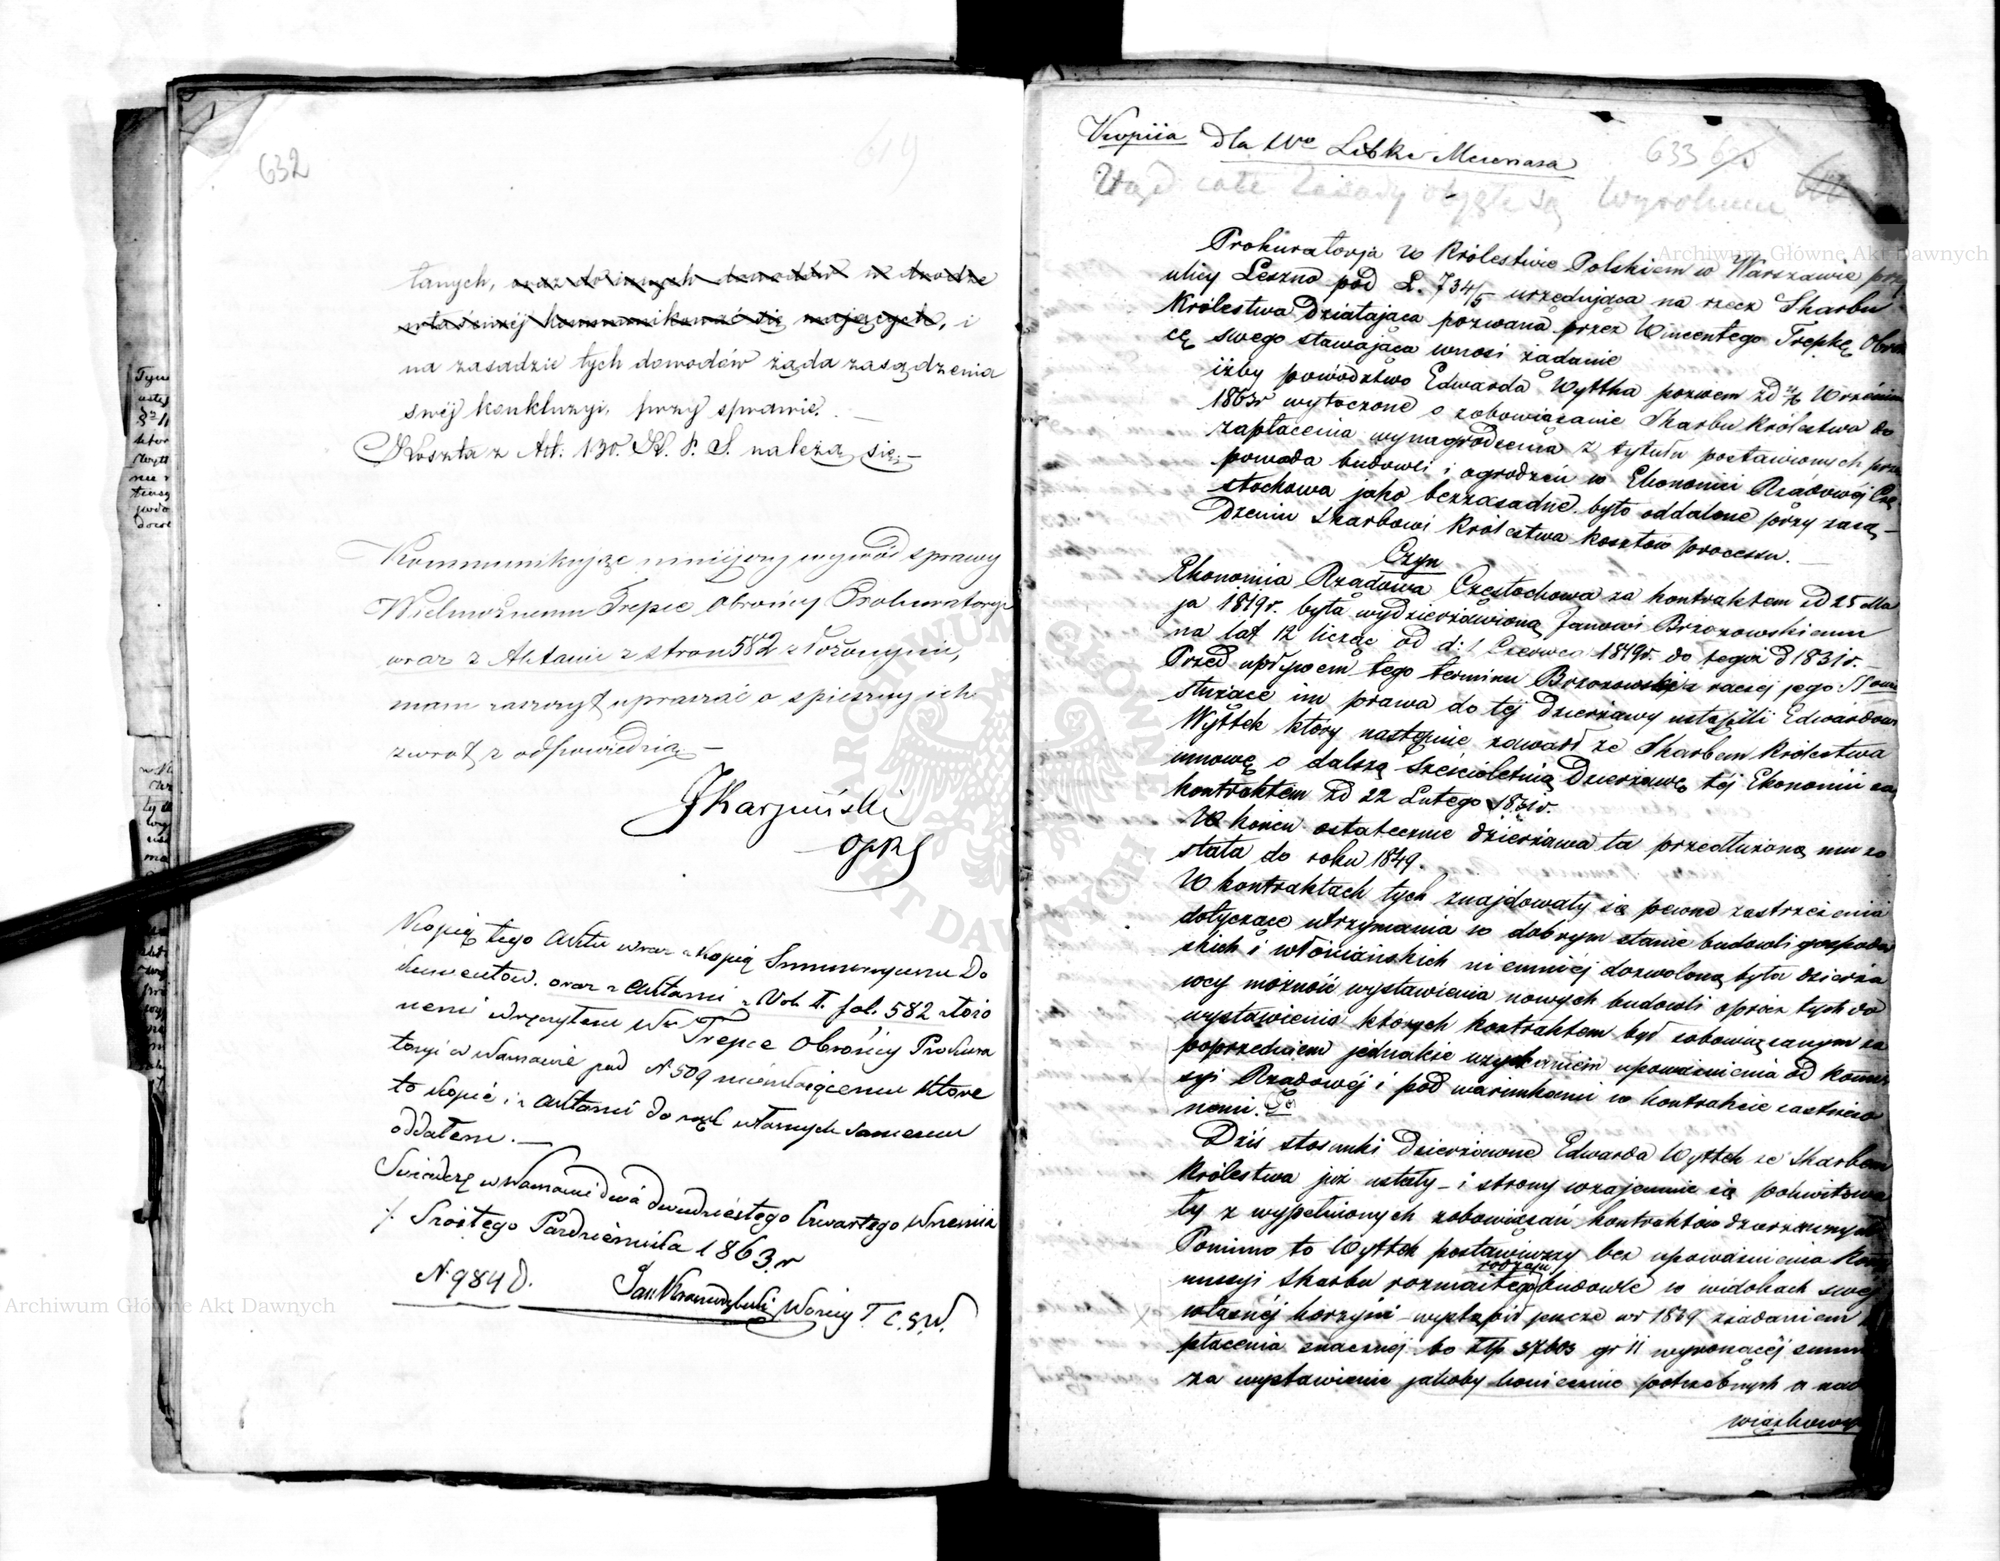 632
619
łanych, oraz do innych dowodów w drodze
właściwéj kommunikować się mających, i
na zasadzie tych dowodów żąda zasądzenia
swéj konkluzyi, przy sprawie.
Koszta z Art. 130. K. P. S. należą się.—
Kommunikując niniejszy wywód sprawy
Wielmożnemu Trepce Obrońcy Prokuratoryi
wraz z Aktami z stron 582 złożonymi,
mam zaszczyt upraszać o spieszny ich
zwrot z odpowiedzią —
JKarzuński
OPKS
Kopię tego Aktu wraz z kopią Summaryusza Do
kumentów, oraz z Aktami z Vol. II. fol. 582 złożo
nemi wręczyłem Wmu Trepce Obrońcy Prokura
toryi w Warszawie pod N 509 mieszkającemu które
to kopie i z Aktami do rąk własnych samemu
oddałem. —
Świadczę w Warszawie dnia dwudziestego Czwartego Września
/. Szóstego Października 1863. r
N. 984 D.
Jan Woźny T. C. G. W.
Kopiia dla Wo Libke Mecenasa
633
Ztąd całe Zasady objęte są Wyrokiem
Prokuratorja w Królestwie Polskiem w Warszawie przy
ulicy Leszno pod L. 734/5 urzędująca na rzecz Skarbu
Królestwa Działająca pozwana przez Wincentego Trepkę Obroń
cę swego stawająca wnosi żądanie
iżby powództwo Edwarda Wyttka pozwem zd Września
1863r wytoczone o zobowiązanie Skarbu Królestwa do
zapłacenia wynagrodzenia z tytułu postawionych przez
powoda budowli i ogrodzeń w Ekonomii Rządowéj Czę
stochowa jako bezzasadne było oddalone przy zasą-
dzeniu Skarbowi Królestwa kosztów processu. —
Czyn
Ekonomia Rządowa Częstochowa za kontraktem zd 25 Ma
ja 1819r. była wydzierżawioną Janowi Brzozowskiemu
na lat 12 licząc od d: 1 Czerwca 1819r. do tegoż d 1831r. —
Przed upływem tego terminu Brzozowski a raczej jego
służące im prawa do téj dzierżawy ustąpili Edwardowi
Wyttek który następnie zawarł ze Skarbem Królestwa
umowę o dalszą sześcioletnią Dzierżawę téj Ekonomii za
kontraktem zd 22 Lutego 1831r.
W końcu ostatecznie dzierżawa ta przedłużoną mu zo
stała do roku 1849.
W kontraktach tych znajdowały się pewne zastrzeżenia
dotyczące utrzymania w dobrym stanie budowli gospodar
skich i włościańskich niemniéj dozwoloną była dzierża
wcy możność wystawienia nowych budowli oprócz tych do
wystawienia których kontraktem był zobowiązanym za
poprzedniem jednakże uzyskaniem upoważnienia od Kommis
syi Rządowéj i pod warunkami w kontrakcie zastrzeżo
nemi.
Dziś stosunki dzierżawne Edwarda Wyttek ze Skarbem
Królestwa już ustały – i strony wzajemnie się pokwitowa
ły z wypełnionych zobowiązań kontraktów dzierżawnych
Pomimo to Wyttek postawiwszy bez upoważnienia Kom
missyi Skarbu rozmaitego rodzaju budowle w widokach swéj
własnéj korzyści wystąpił jeszcze w r 1849 z żądaniem
płacenia znacznéj bo złp 37603 gr 11 wynoszącéj summy
za wystawienie jakoby koniecznie potrzebnych a nad